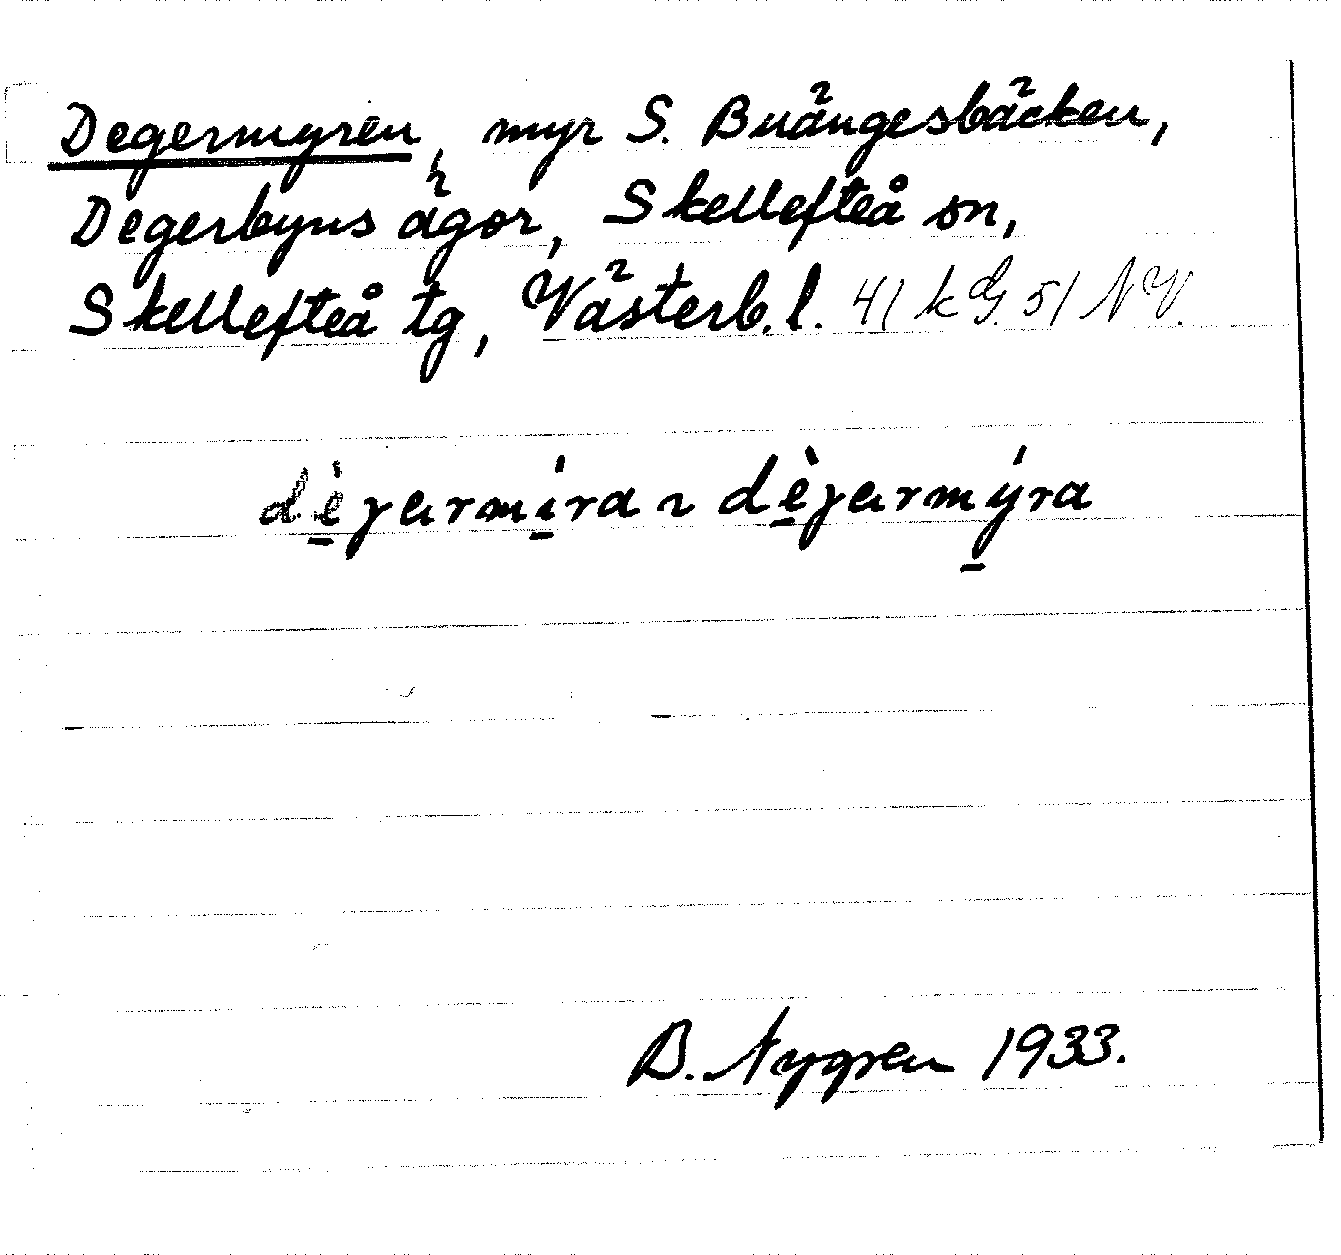 Degermyren, myr S. Buängesbäcken,
Degerbyns ägor, Skellefteå sn,
Skellefteå tg, Västerb. l. 41 k dG. 51 NV.
dèɣarmíra ~ dèɣarmýra
B. Nygren 1933.